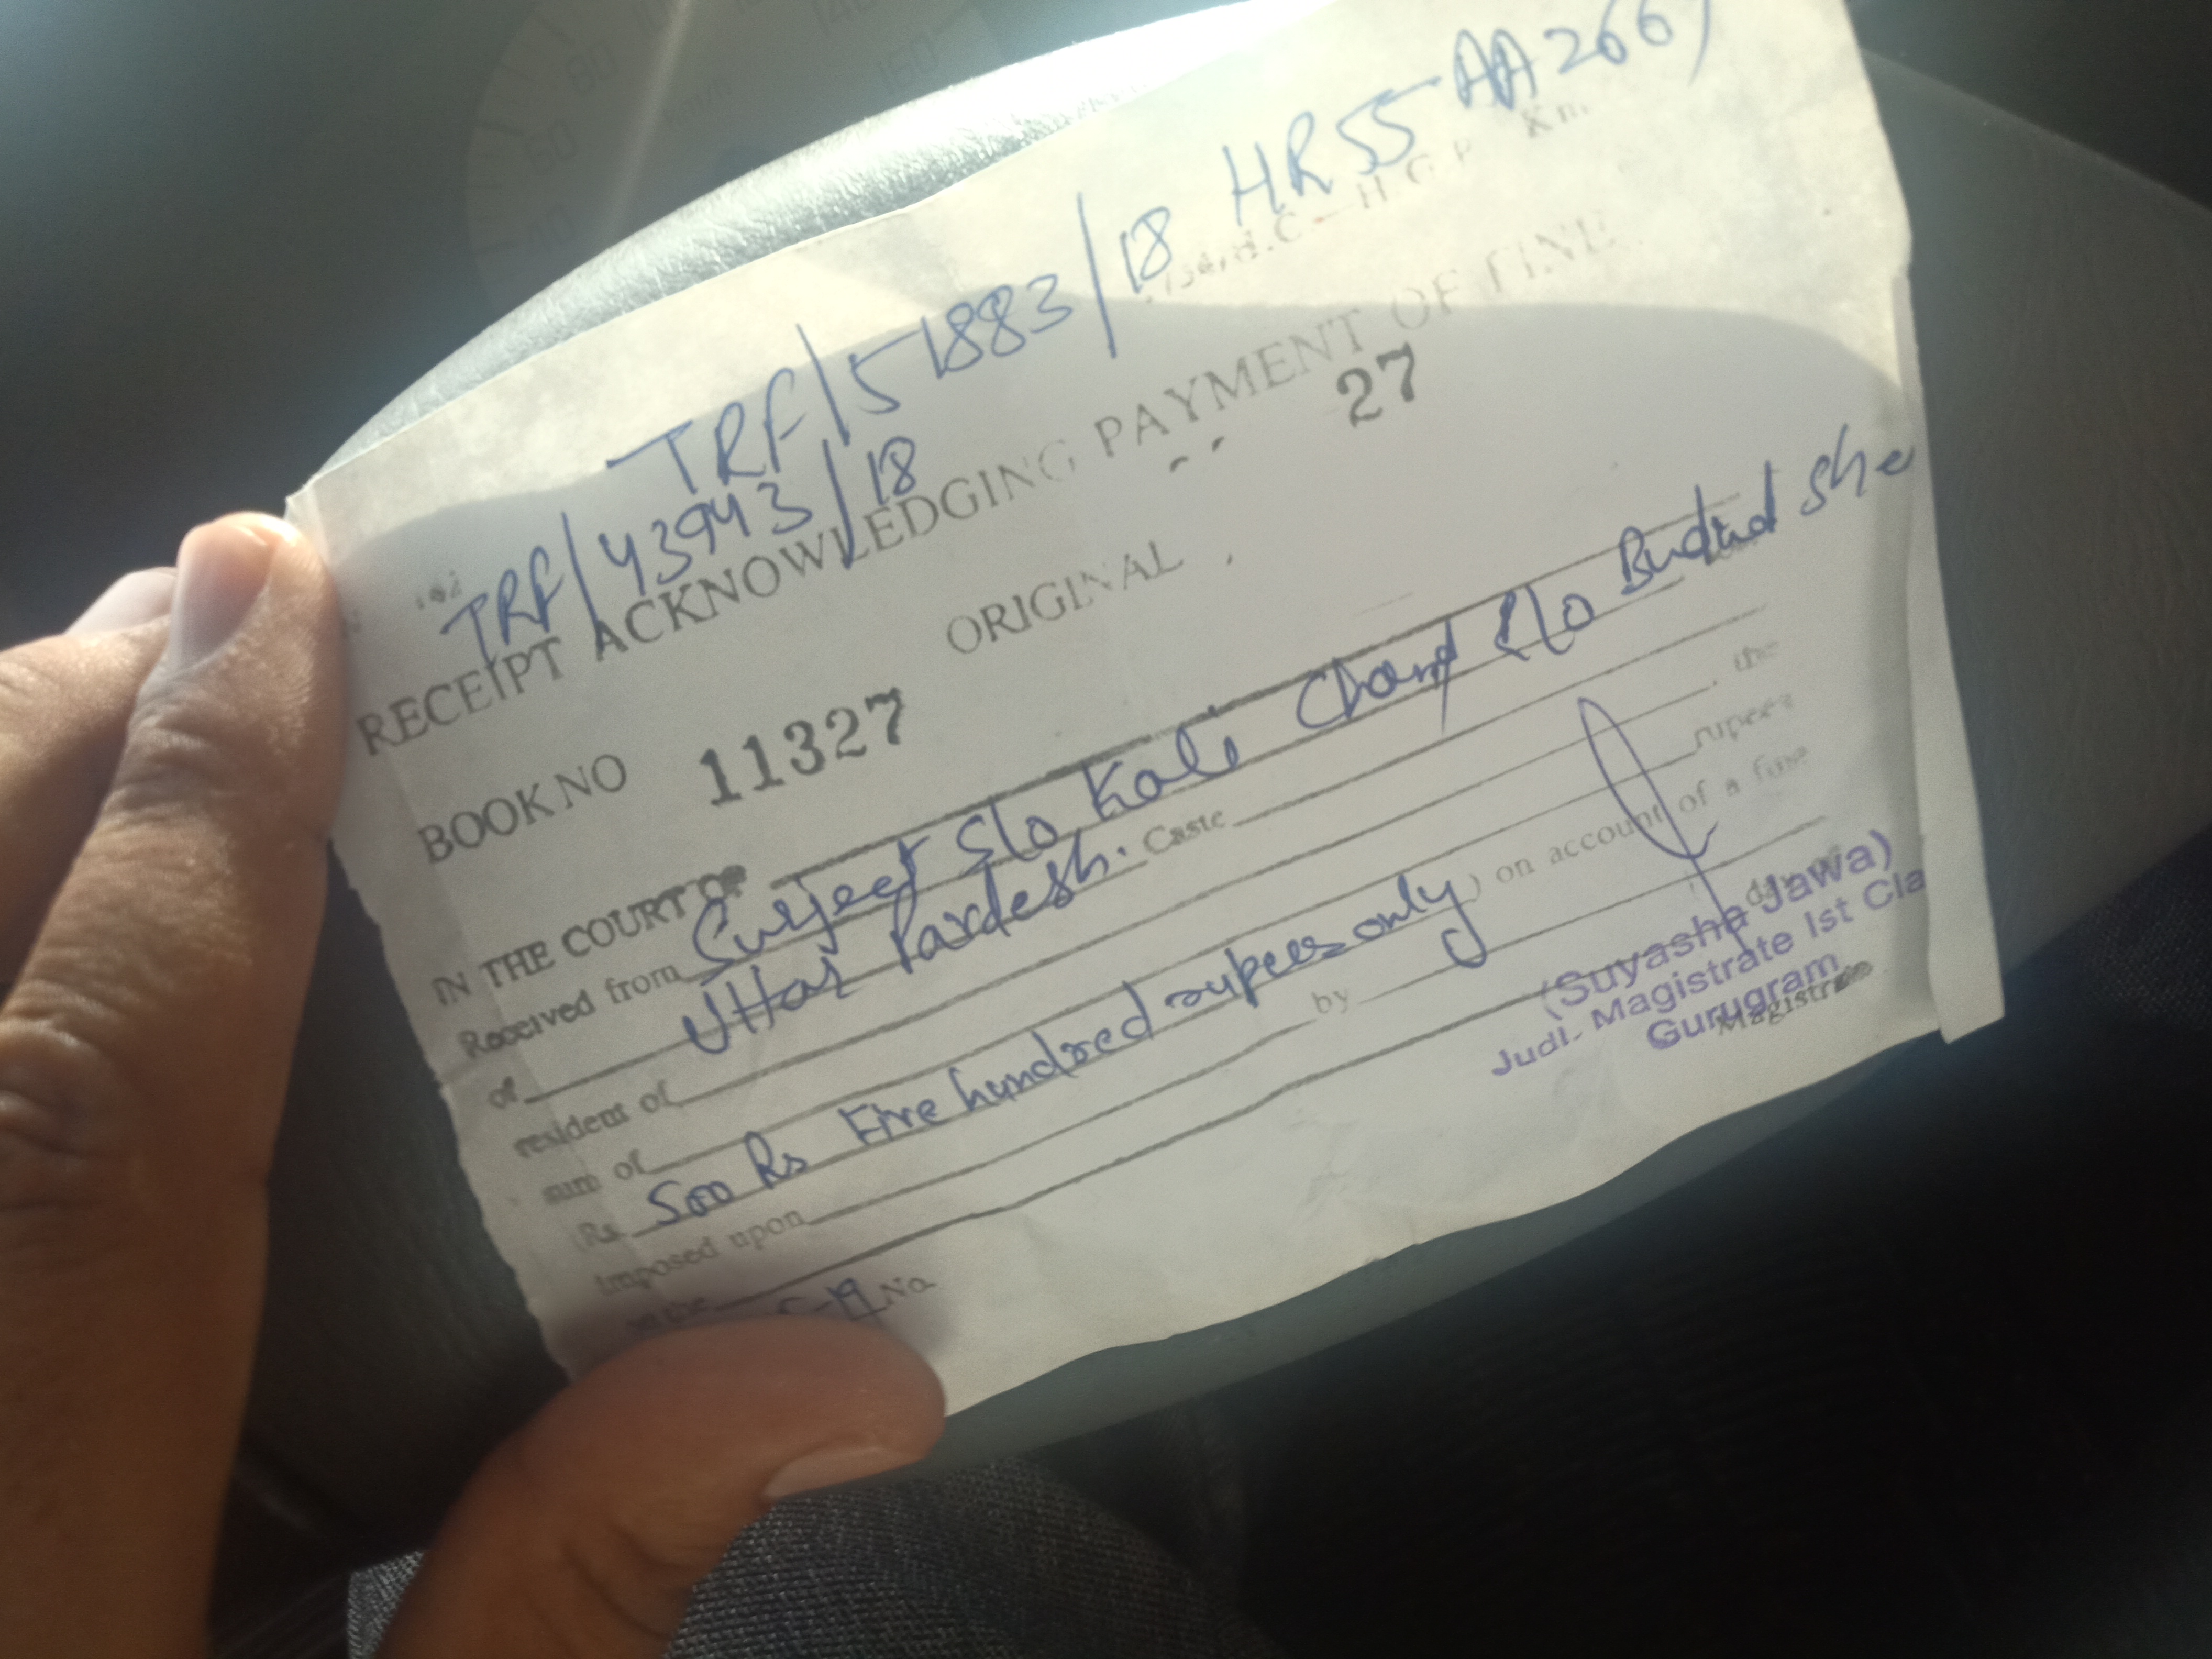 TRF/51883/18 HR55-AA266
TRF/43943/18
RECEIPT ACKNOWLEDGING PAYMENT OF FINE
27
ORIGINAL
BOOK NO 11327
IN THE COURT OF
Received from Surjeet S/o Kali Chand R/o
of Uttar Pardesh. Caste
resident of , the
sum of rupees
Rs 500 Rs Five hundred rupees only ) on account of a fine
imposed upon by
No.
(Suyasha Jawa)
Judl. Magistrate Ist Cla
Gurugram
Magistrate